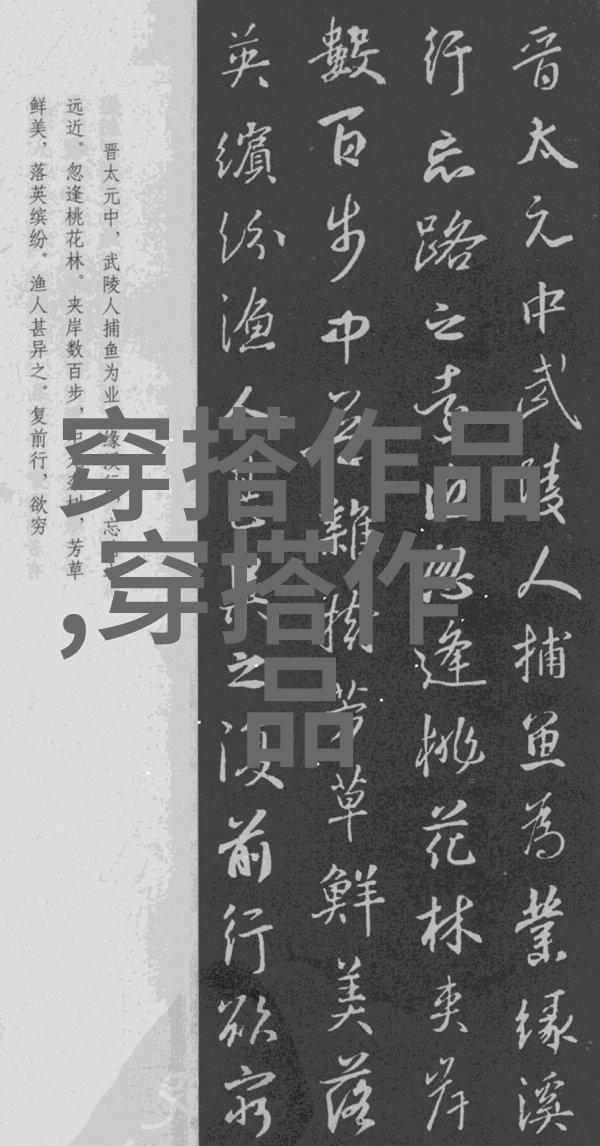 晋太元中武陵人捕魚為業緣溪
行忘路之遠近忽逢桃花林夾岸
數百步中無雜樹芳草鮮美落
英繽紛漁人甚異之復前行欲窮
晋太元中，武陵人捕鱼为业 缘溪行 忘
远近。忽逢桃花林。夹岸数百步，中无杂树，芳草
鲜美，落英缤纷。渔人甚异之。复前行，欲穷
穿搭作品
,穿搭作
品